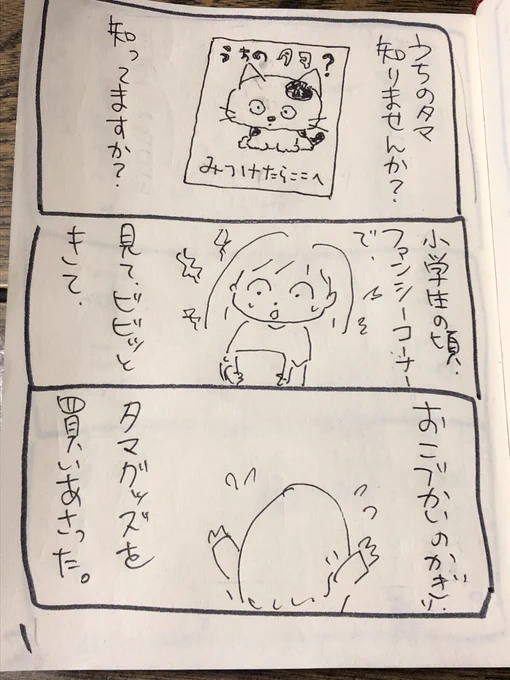 うちのタマ
知りませんか?
うちのタマ?
みつけたらここへ
知ってますか?
小学生の頃、
ファンシーコーナー
で、
見て、ビビッと
きて、
おこづかいのかぎり、
タマグッズを
買いあさった。
1